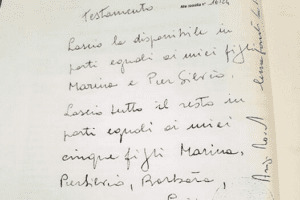 Testamento
Lascio la disponibile in
parti eguali ai miei figli
Marina e Pier Silvio.
Lascio tutto il resto in
parti eguali ai miei
cinque figli Marina,
PierSilvio, Barbara,